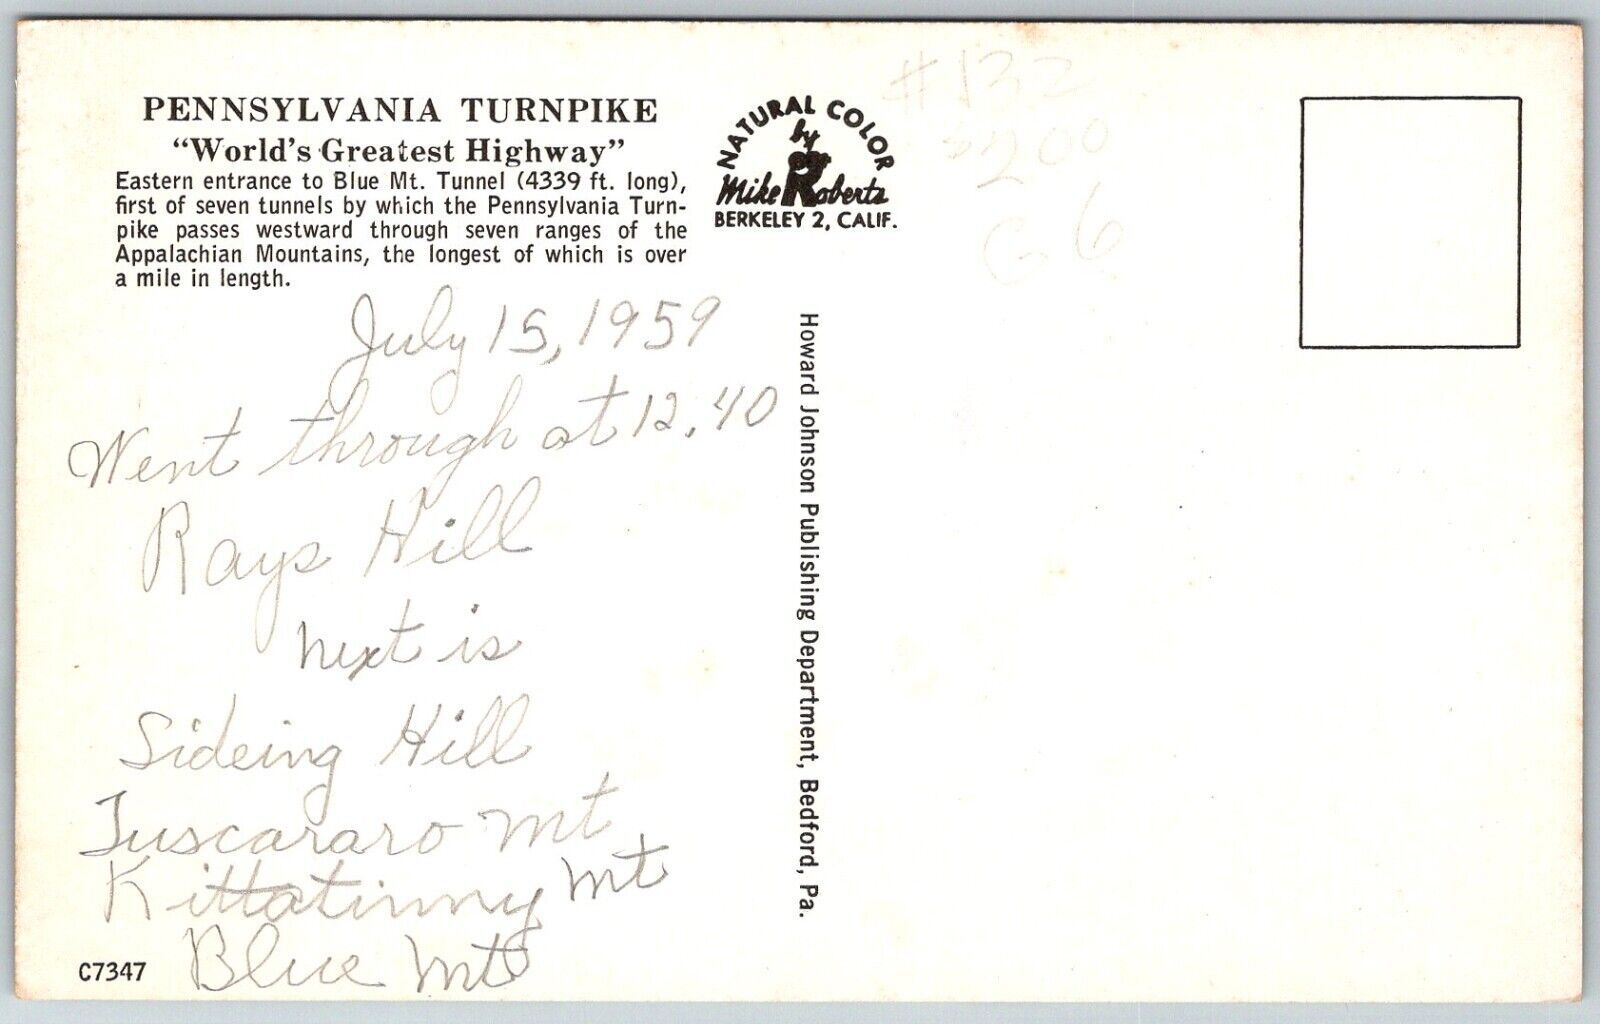 PENNSYLVANIA TURNPIKE
“World's Greatest Highway”
Eastern entrance to Blue Mt. Tunnel (4339 ft. long),
first of seven tunnels by which the Pennsylvania Turn-
pike passes westward through seven ranges of the
Appalachian Mountains, the longest of which is over
a mile in length.
July 15, 1959
Went through at 12.40
Rays Hill
next is
Sideing Hill
Tuscararo Mt
Kittatinny Mt
Blue Mt
C7347
NATURAL COLOR
by
Mike Roberts
BERKELEY 2, CALIF.
Howard Johnson Publishing Department, Bedford, Pa.
#132
$200
G 6